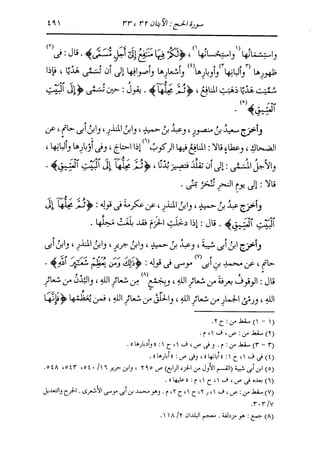 سورة الحج: الآيتان ٣٢، ٣٣ ٤٩١
واستِسْمَانُها(١) واستِحْسانُها(١)، ﴿لَكُمْ فِيهَا مَنَافِعُ إِلَىٰ أَجَلٍ مُّسَمًّى﴾. قال: في(٢)
ظهورِها(٣) وألبانِها(٣) وأوبارِها(٤) وأشعارِها وأصوافِها إلى أن تُسَمَّى هَدْيًا، فإذا
سُمِّيَت هَدْيًا ذهَبَت المنافعُ، ﴿ثُمَّ مَحِلُّهَا﴾. يقولُ: حينَ تُسَمَّى ﴿إِلَى الْبَيْتِ
الْعَتِيقِ﴾(٥).
وأخرَج سعيدُ بنُ منصورٍ، وعبدُ بنُ حميدٍ، وابنُ المنذرِ، وابنُ أبى حاتمٍ، عن
الضحاكِ، وعطاءٍ قالا: المنافعُ فيها الركوبُ(٦) إذا احتاج، وفى أوبارِها وألبانِها،
والأجلُ المسمَّى: إلى أن تُقَلَّدَ فتصيرَ بُدْنًا، ﴿ثُمَّ مَحِلُّهَا إِلَى الْبَيْتِ الْعَتِيقِ﴾.
قالا: إلى يومِ النحرِ تُنْحَرُ بمنًى.
وأخرَج عبدُ بنُ حميدٍ، وابنُ المنذرِ، عن عكرمةَ فى قولِه: ﴿ثُمَّ مَحِلُّهَا إِلَى
الْبَيْتِ الْعَتِيقِ﴾. قال: إذا دخَلتِ الحرمَ فقد بلَغَت مَحِلَّها.
وأخرَج ابنُ أبى شيبةَ، وعبدُ بنُ حميدٍ، وابنُ جريرٍ، وابنُ المنذرِ، وابنُ أبى
حاتمٍ، عن محمدِ بنِ أبى(٧) موسى فى قولِه: ﴿ذَٰلِكَ وَمَن يُعَظِّمْ شَعَائِرَ اللَّهِ﴾.
قال: الوقوفُ بعرفةَ من شعائرِ اللهِ، وبجَمْعٍ(٨) مِن شعائرِ اللهِ، والبُدْنُ من شعائرِ
اللهِ، ورمىُ الجمارِ من شعائرِ اللهِ، والحلْقُ من شعائرِ اللهِ، فمن يُعَظِّمْها ﴿فَإِنَّهَا
(١ - ١) سقط من: ح ٢.
(٢) سقط من: ص، ف ١، م.
(٣ - ٣) سقط من: م. وفى ص، ف ١، ح ١: «وأدبارها».
(٤) فى ف ١، ح ١: «أبانها»، وفى ص: «أبارها».
(٥) ابن أبى شيبة (القسم الأول من الجزء الرابع) ص ٢٩٥، وابن جرير ١٦/ ٥٤٠، ٥٤٣، ٥٤٨.
(٦) بعده فى ص، ف ١، ح ١، م: «عليها».
(٧) سقط من: ص، ف ١، ر ٢، ح ١، ح ٢، م. وهو محمد بن أبى موسى الأشعرى. الجرح والتعديل
(٨) جمع: هو مزدلفة. معجم البلدان ٢/ ١١٨.